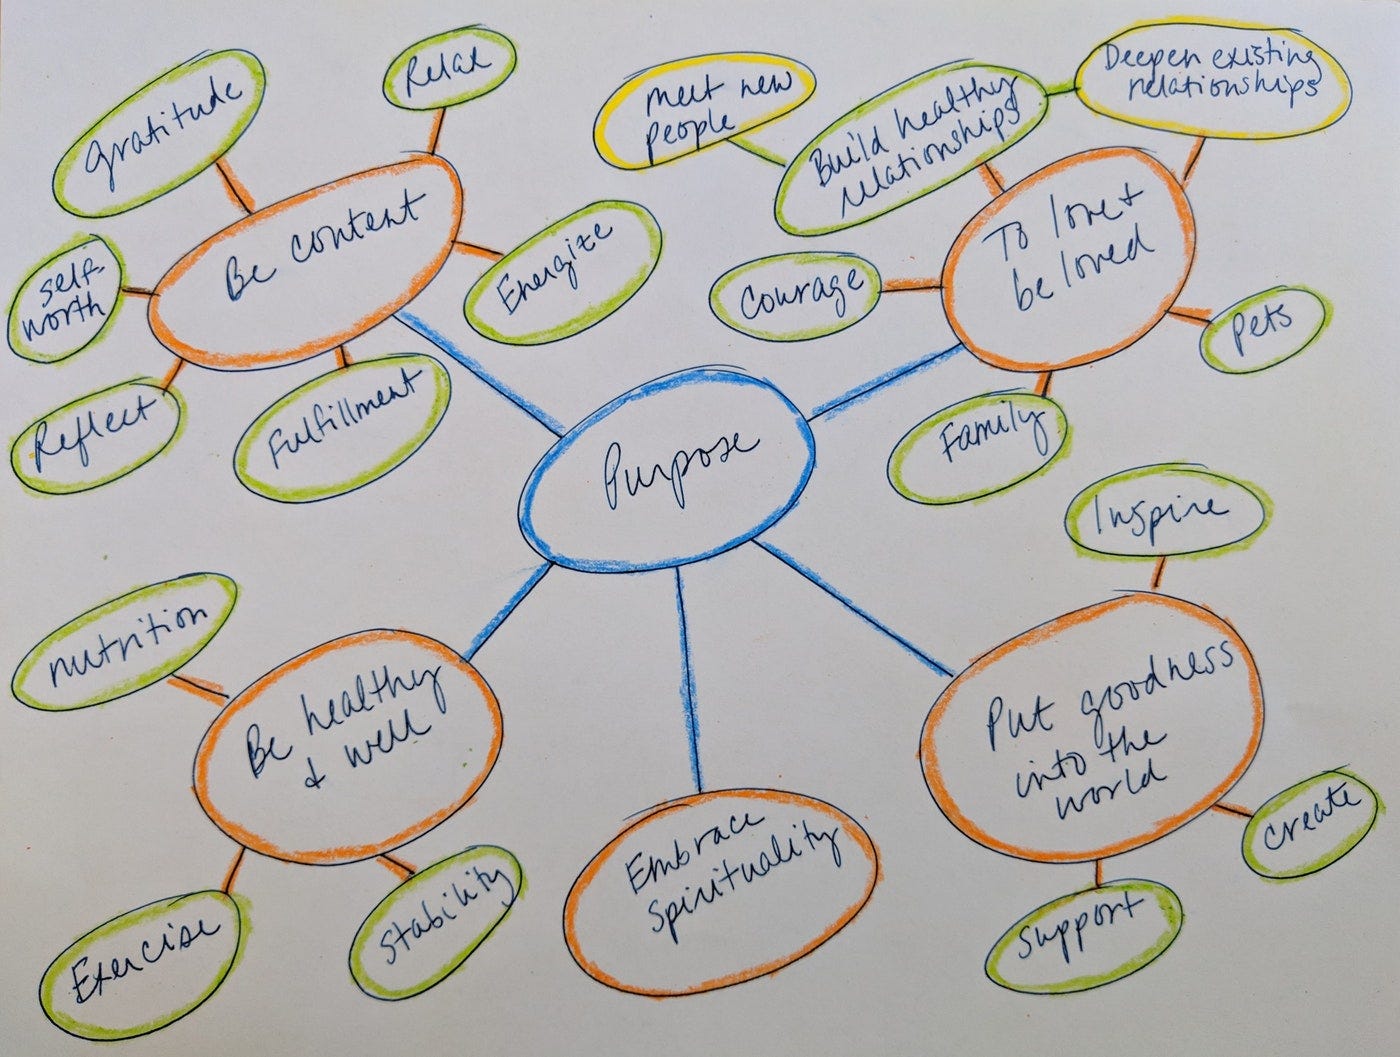 Relax
gratitude
Be content
Energize
self-
worth
Reflect
Fulfillment
meet new
people
Build healthy
relationships
Deepen existing
relationships
To love +
be loved
Courage
Pets
Family
Purpose
Inspire
nutrition
Be healthy
+ well
Exercise
Stability
Embrace
Spirituality
Put goodness
into the
world
create
Support